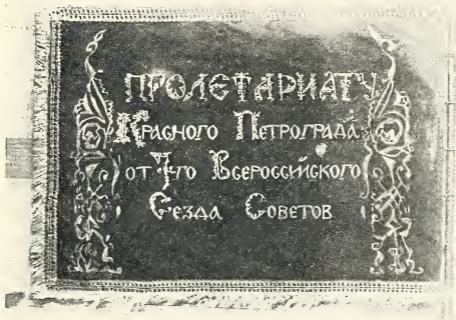 ПРОЛЕТАРИАТУ
Красного Петрограда
от 7го Всероссийского
С'езда Советов